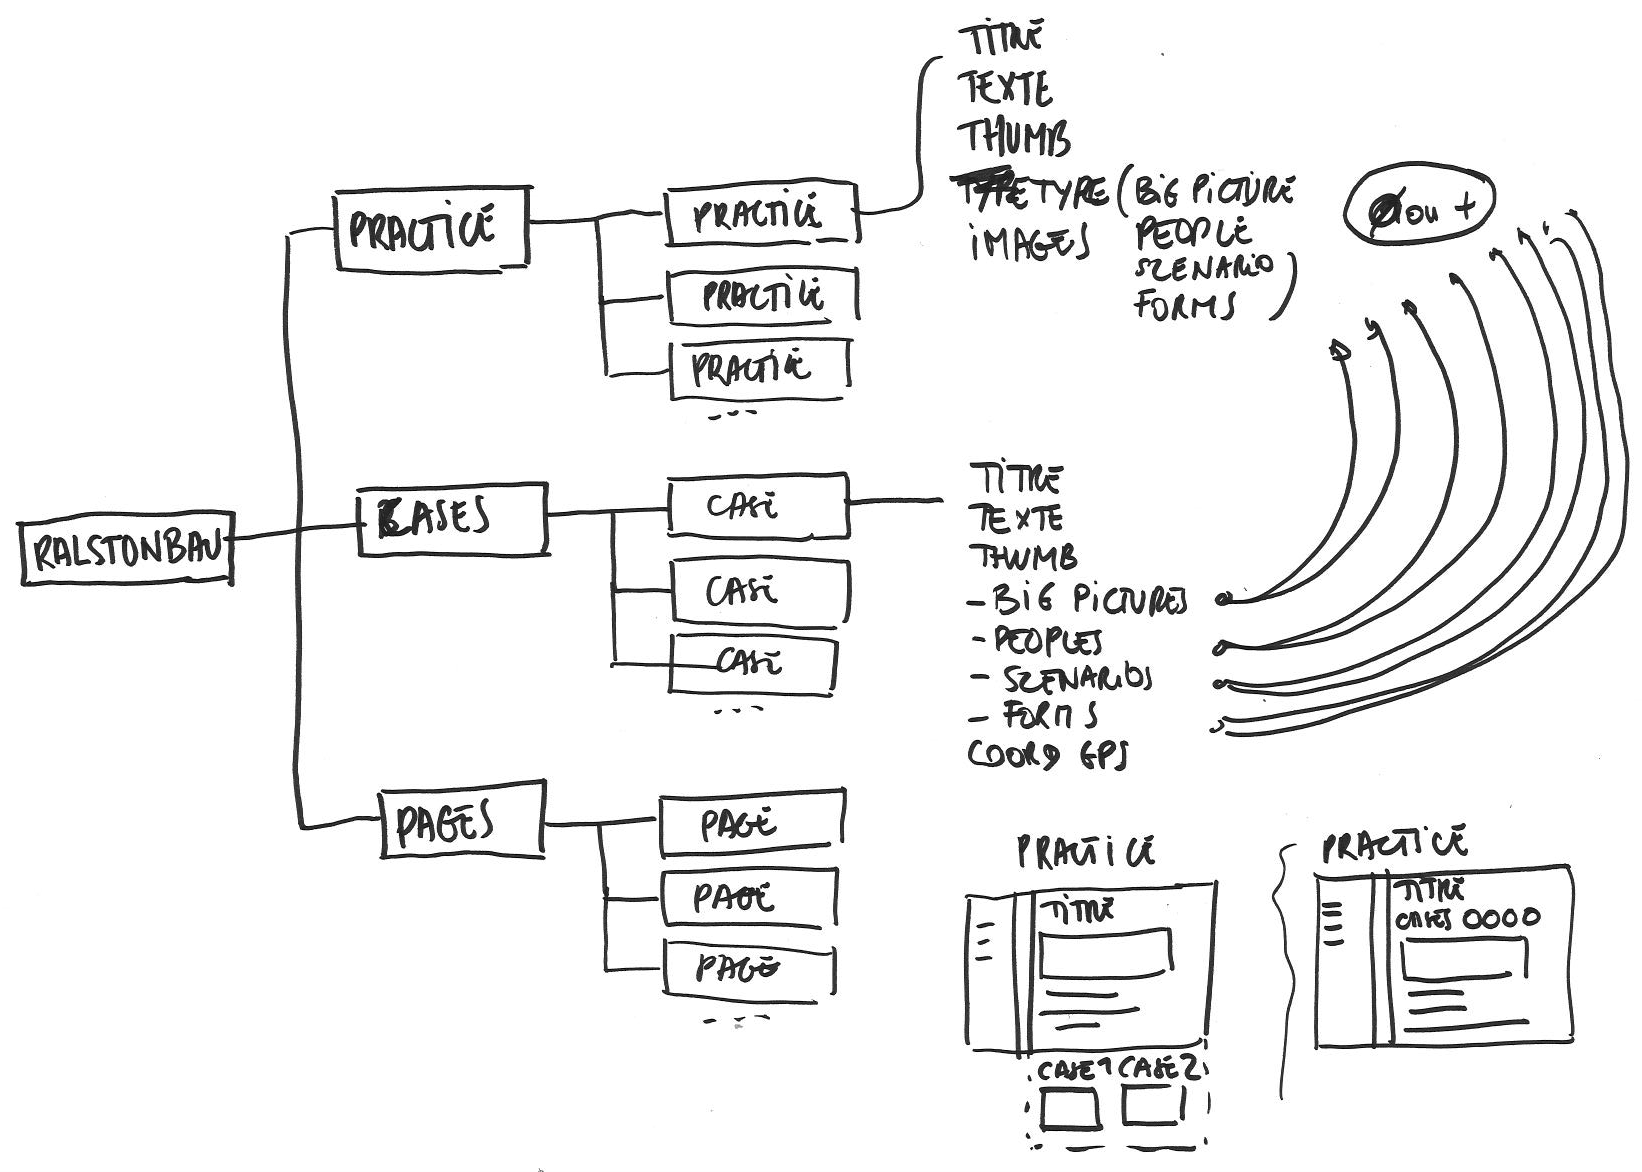 RALSTONBAU
PRACTICE
PRACTICE
PRACTICE
PRACTICE
TITRE
TEXTE
THUMB
TYPE (BIG PICTURE
PEOPLE
SZENARIO
FORMS)
IMAGES
ou +
CASES
CASE
CASE
CASE
TITRE
TEXTE
THUMB
- BIG PICTURES
- PEOPLES
- SZENARIOS
- FORMS
COORD GPS
PAGES
PAGE
PAGE
PAGE
PRACTICE
TITRE
CASE 1 CASE 2
PRACTICE
TITRE
CASES OOOO